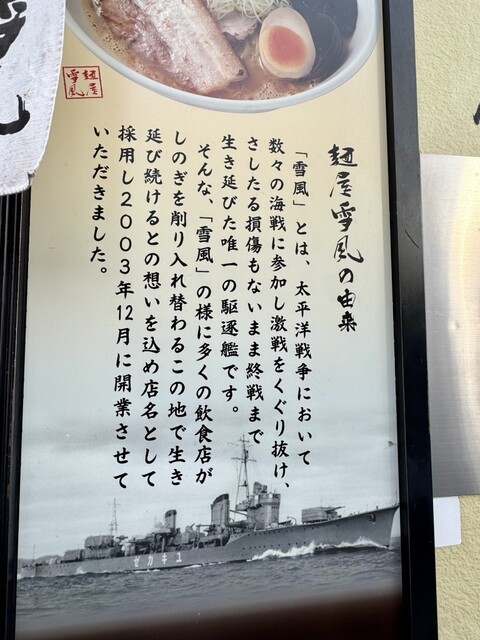 麺屋雪風
麺屋雪風の由来
「雪風」とは、太平洋戦争において
数々の海戦に参加し激戦をくぐり抜け、
さしたる損傷もないまま終戦まで
生き延びた唯一の駆逐艦です。
そんな、「雪風」の様に多くの飲食店が
しのぎを削り入れ替わるこの地で生き
延び続けるとの想いを込め店名として
採用し2003年12月に開業させて
いただきました。
ゼカキユ